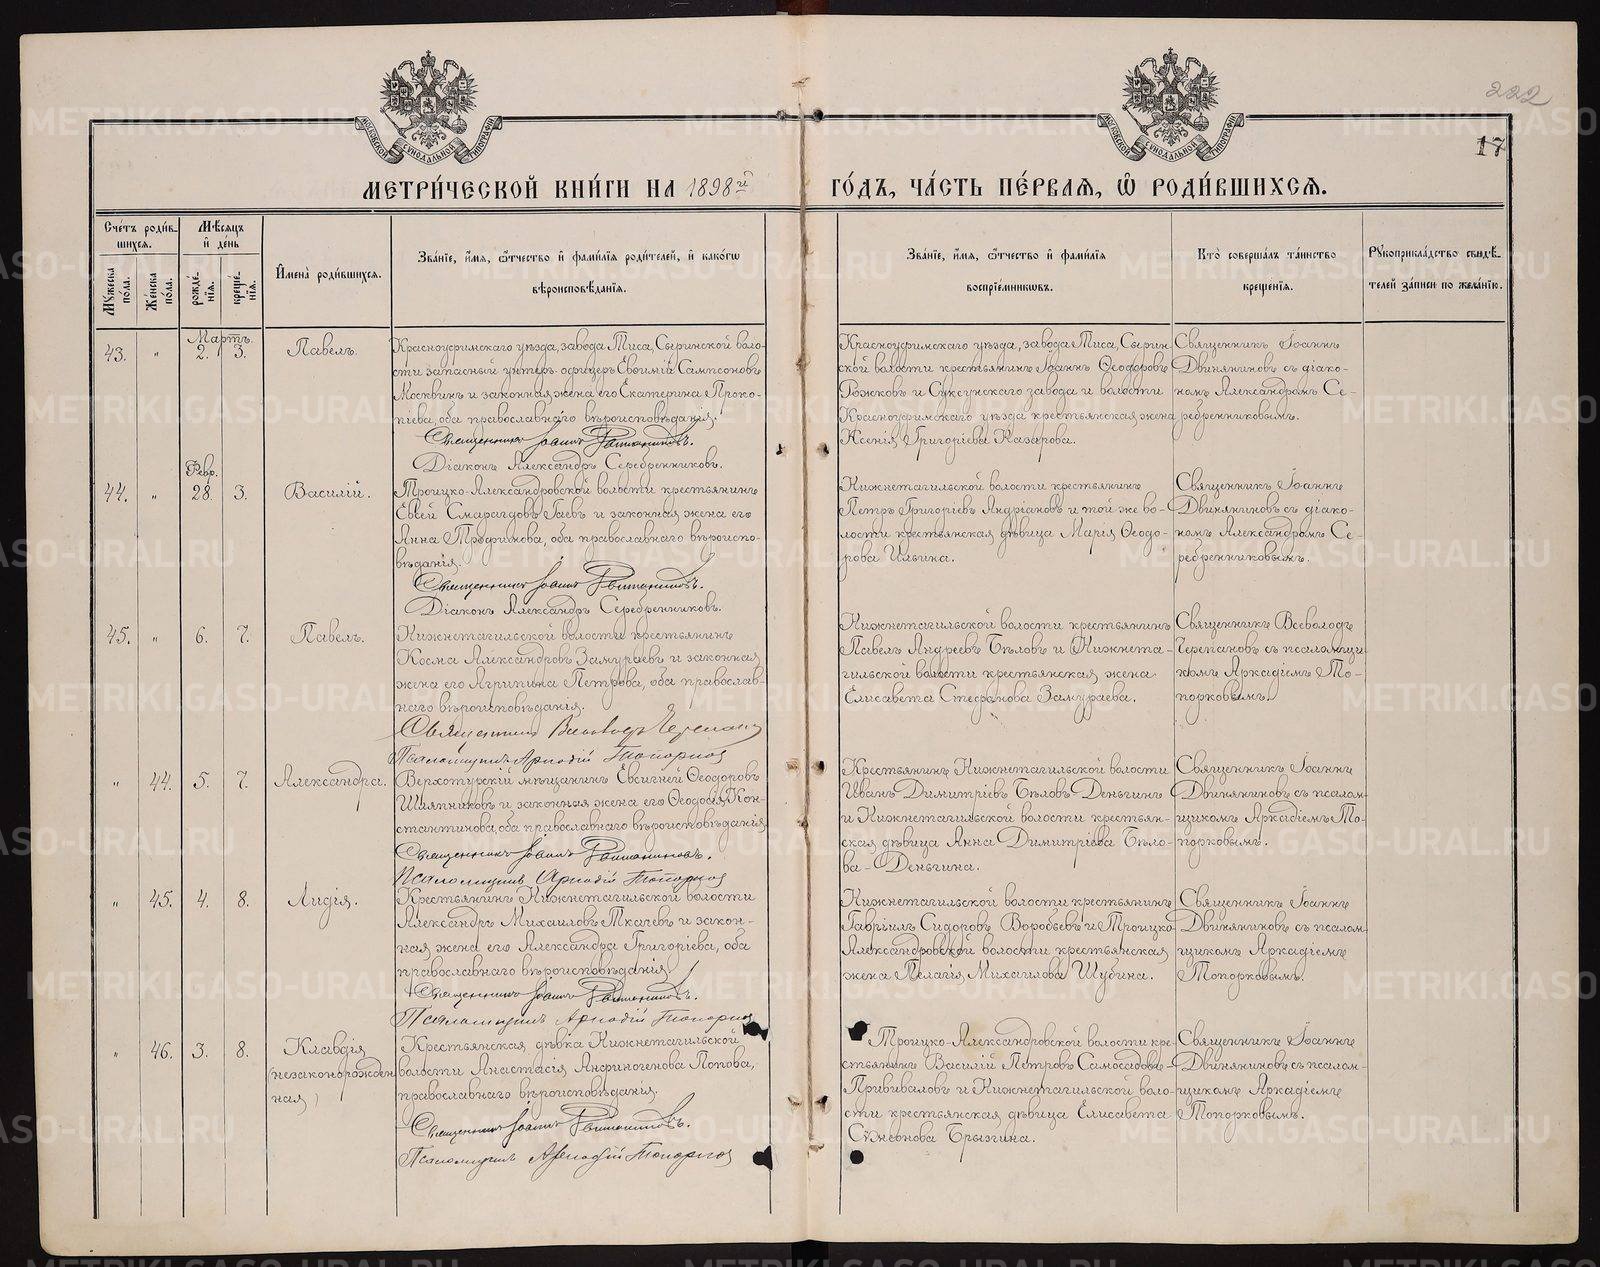 222
17
МОСКОВСКОЙ СУНОДАЛЬНОЙ ТИПОГРАФІИ
МОСКОВСКОЙ СУНОДАЛЬНОЙ ТИПОГРАФІИ
МЕТРИ́ЧЕСКОЙ КНИ́ГИ НА 1898й
ГО́ДЪ, ЧА́СТЬ ПЕ́РВАЯ, Ѿ РОДИ́ВШИХСЯ.
Сче́тъ роди́вшихся.
Му́жеска по́ла.
Же́нска по́ла.
Мѣ́сяцъ и҆ де́нь
рожде́нїя.
креще́нїя.
И҆мена̀ роди́вшихся.
Зва́нїе, и҆́мя, ѻ҆́тчество и҆ фами́лїя роди́телей, и҆ како́гѡ
вѣроисповѣ́данїя.
Зва́нїе, и҆́мя, ѻ҆́тчество и҆ фами́лїя
воспрїе́мникѡвъ.
Кто̀ соверша́лъ та́инство
креще́нїя.
Рꙋкоприкла́дство свидѣ́телей за́писи по жела́нїю.
Мартъ.
43. " 2. 3. Павелъ.
Красноуфимскаго уѣзда, завода Тиса, Сыринской воло-
сти запасный унтеръ-офицеръ Евѳимій Сампсоновъ
Москвинъ и законная жена его Екатерина Проко-
піева, оба православнаго вѣроисповѣданія.
Священникъ Іоаннъ Двиняниновъ.
Діаконъ Александръ Серебренниковъ.
Красноуфимскаго уѣзда, завода Тиса, Сырин-
ской волости крестьянинъ Іоаннъ Ѳеодоровъ
Рожковъ и Суксунскаго завода и волости
Красноуфимскаго уѣзда крестьянская жена
Ксенія Григоріева Казарова.
Священникъ Іоаннъ
Двиняниновъ съ діако-
номъ Александромъ Се-
ребренниковымъ.
Февр.
44. " 28. 3. Василій.
Троицко-Александровской волости крестьянинъ
Евсей Смарагдовъ Гаевъ и законная жена его
Анна Трофимова, оба православнаго вѣроиспо-
вѣданія.
Священникъ Іоаннъ Двиняниновъ.
Діаконъ Александръ Серебренниковъ.
Нижнетагильской волости крестьянинъ
Петръ Григоріевъ Андріановъ и той же во-
лости крестьянская дѣвица Марія Ѳеодо-
рова Ильина.
Священникъ Іоаннъ
Двиняниновъ съ діако-
номъ Александромъ Се-
ребренниковымъ.
45. " 6. 7. Павелъ.
Нижнетагильской волости крестьянинъ
Косма Александровъ Замураевъ и законная
жена его Агрипина Петрова, оба православ-
наго вѣроисповѣданія.
Священникъ Всеволодъ Черепановъ
Псаломщикъ Аркадій Топорковъ
Нижнетагильской волости крестьянинъ
Павелъ Андреевъ Бѣловъ и Нижнета-
гильской волости крестьянская жена
Елисавета Стефанова Замураева.
Священникъ Всеволодъ
Черепановъ съ псаломщи-
комъ Аркадіемъ То-
порковымъ.
" 44. 5. 7. Александра.
Верхотурскій мѣщанинъ Евгеній Ѳеодоровъ
Шляпниковъ и законная жена его Ѳеодосія Кон-
стантинова, оба православнаго вѣроисповѣданія.
Священникъ Іоаннъ Двиняниновъ.
Псаломщикъ Аркадій Топорковъ
Крестьянинъ Нижнетагильской волости
Иванъ Димитріевъ Бѣловъ-Деньгинъ
и Нижнетагильской волости крестьян-
ская дѣвица Анна Димитріева Бѣло-
ва-Деньгина.
Священникъ Іоаннъ
Двиняниновъ съ псалом-
щикомъ Аркадіемъ То-
порковымъ.
" 45. 4. 8. Лидія.
Крестьянинъ Нижнетагильской волости
Александръ Михаиловъ Ткачевъ и закон-
ная жена его Александра Григоріева, оба
православнаго вѣроисповѣданія.
Священникъ Іоаннъ Двиняниновъ.
Псаломщикъ Аркадій Топорковъ
Нижнетагильской волости крестьянинъ
Гавріилъ Сидоровъ Воробьевъ и Троицко-
Александровской волости крестьянская
жена Пелагія Михаилова Шубина.
Священникъ Іоаннъ
Двиняниновъ съ псалом-
щикомъ Аркадіемъ
Топорковымъ.
" 46. 3. 8. Клавдія
(незаконорожден
ная)
Крестьянская дѣвка Нижнетагильской
волости Анастасія Анфиногенова Попова,
православнаго вѣроисповѣданія.
Священникъ Іоаннъ Двиняниновъ.
Псаломщикъ Аркадій Топорковъ
Троицко-Александровской волости кре-
стьянинъ Василій Петровъ Самосадовъ-
Прививаловъ и Нижнетагильской воло-
сти крестьянская дѣвица Елисавета
Сѵмеонова Брызгина.
Священникъ Іоаннъ
Двиняниновъ съ псалом-
щикомъ Аркадіемъ
Топорковымъ.
METRIKI.GASO-URAL.RU